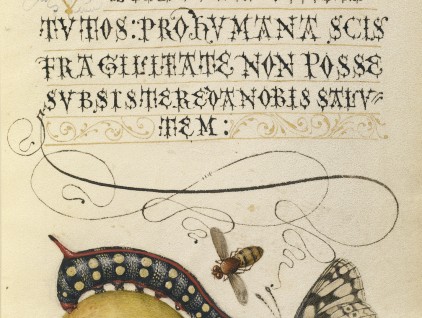 TVTOS: PRO HVMANA SCIS
FRAGILITATE NON POSSE
SVBSISTERE DA NOBIS SALV-
TEM: